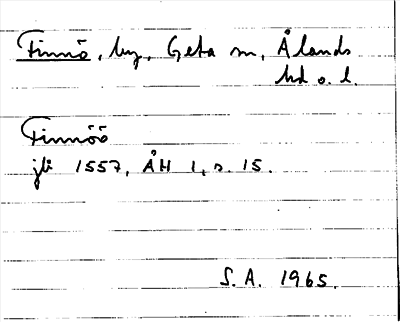 Finnö, by, Geta sn, Ålands
hd o. l.
Finnöö
jb 1557, ÅH 1, s. 15.
S. A. 1965.